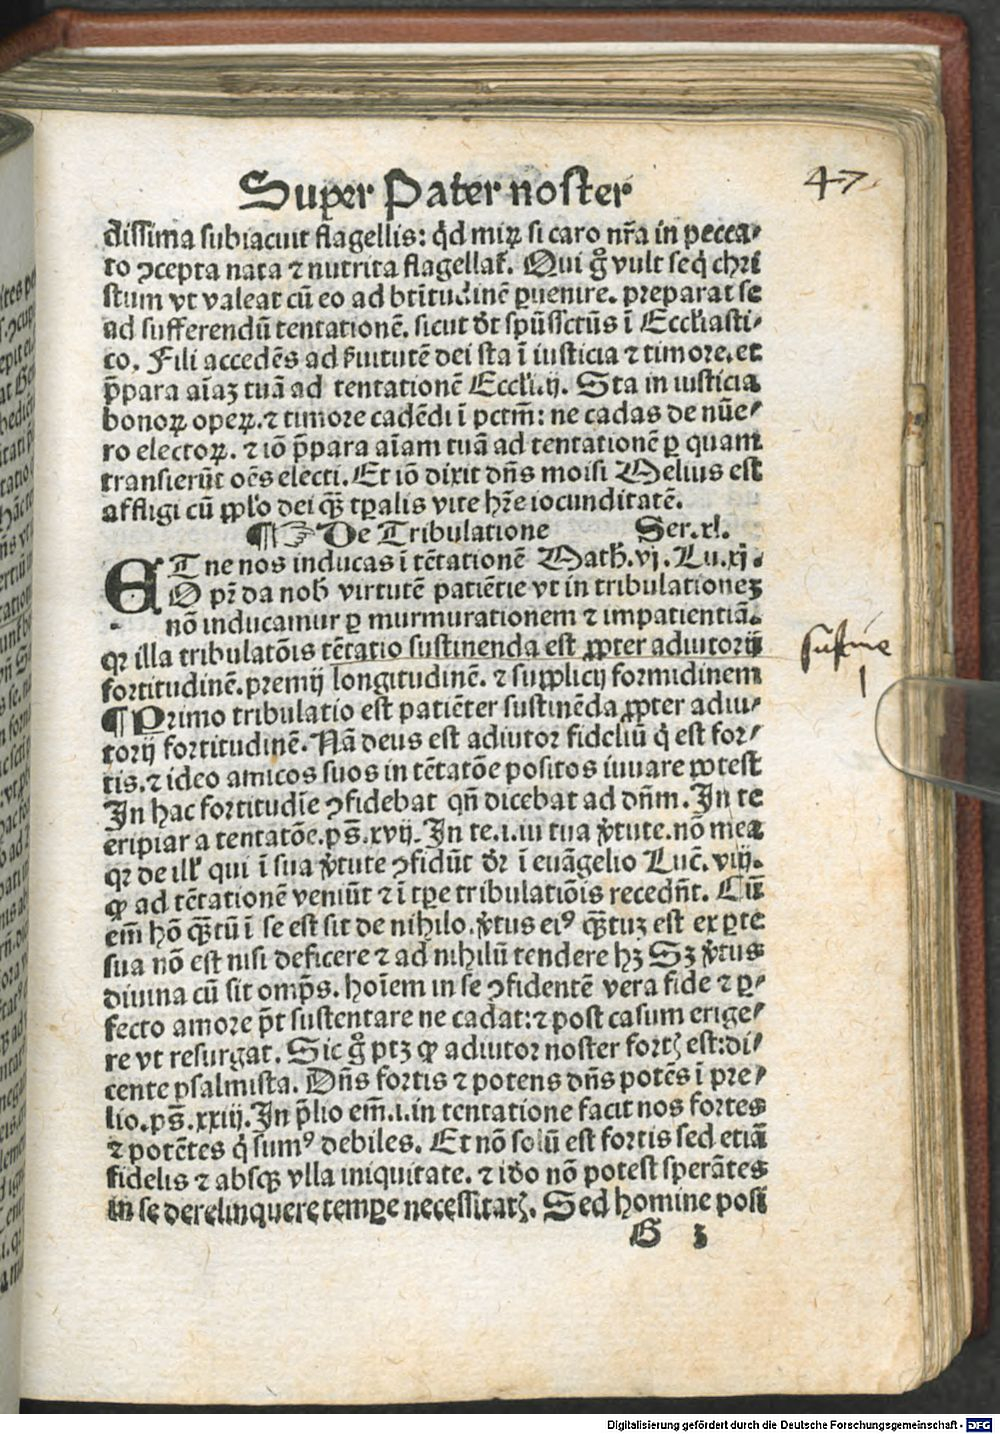 Super Pater noster
47.
dissima subiacuit flagellis: qd̄ miꝝ si caro nr̄a in pecca⸗
to ꝯcepta nata ⁊ nutrita flagellat̄. Qui gͦ vult seq̇ chri
stum vt valeat cū eo ad btītudinē ꝑuenire. preparat se
ad sufferendū tentationē. sicut dr̄ spūssctūs ī Eccl̄iasti⸗
co. Fili accedēs ad ẜuitutē dei sta ī iusticia ⁊ timore. et
p̄para aīaꝫ tuā ad tentationē Eccl̄i.ij. Sta in iusticia
bonoꝝ opeꝝ. ⁊ timore cadēdi ī pctm̄: ne cadas de nūe⸗
ro electoꝝ. ⁊ iō p̄para aīam tuā ad tentationē ꝑ quam
transierūt oēs electi. Et iō dixit dn̄s moisi Melius est
affligi cū ppl̄o dei qͣꝫ tꝑalis vite hr̄e iocunditatē.
¶ ☞ De Tribulatione Ser.xl.
ET ne nos inducas ī tētationē Math̄.vj. Lu.xj.
O pr̄ da nob̄ virtutē patiētie vt in tribulationeꝫ
nō inducamur ꝑ murmurationem ⁊ impatientiā.
qꝛ illa tribulatōis tētatio sustinenda est ꝓpter adiutorij
sustine
fortitudinē. premij longitudinē. ⁊ supplicij formidinem
1
¶ Primo tribulatio est patiēter sustinēda ꝓpter adiu⸗
torij fortitudinē. Nā deus est adiutor fideliū q̇ est for⸗
tis. ⁊ ideo amicos suos in tētatōe positos iuuare potest
In hac fortitudīe ꝯfidebat qn̄ dicebat ad dn̄m. In te
eripiar a tentatōe. ps̄.xvij. In te.i.in tua v̄tute. nō mea
qꝛ de ill̄ qui ī sua v̄tute ꝯfidūt dr̄ ī euāgelio Luc̄. viij.
ꝙ ad tētationē veniūt ⁊ ī tꝑe tribulatiōis recedn̄t. Cū
em̄ hō qͣꝫtū ī se est sit de nihilo. v̄tus eiꝰ qͣꝫtuꝫ est ex ꝑte
sua nō est nisi deficere ⁊ ad nihilū tendere hꝫ Sꝫ v̄tus
diuina cū sit omp̄s. hoīem in se ꝯfidentē vera fide ⁊ ꝑ⸗
fecto amore pt̄ sustentare ne cadat: ⁊ post casum erige⸗
re vt resurgat. Sic gͦ ptꝫ ꝙ adiutor noster fortꝭ est: di⸗
cente psalmista. Dn̄s fortis ⁊ potens dn̄s potēs ī pre⸗
lio. ps̄.xxiij. In p̄lio em̄.i.in tentatione facit nos fortes
⁊ potētes q̇ sumꝰ debiles. Et nō solū est fortis sed etiā
fidelis ⁊ absqꝫ vlla iniquitate. ⁊ idō nō potest sperātes
in se derelinquere tempꝑe necessitatꝭ. Sed homine posi
G 3
Digitalisierung gefördert durch die Deutsche Forschungsgemeinschaft - DFG